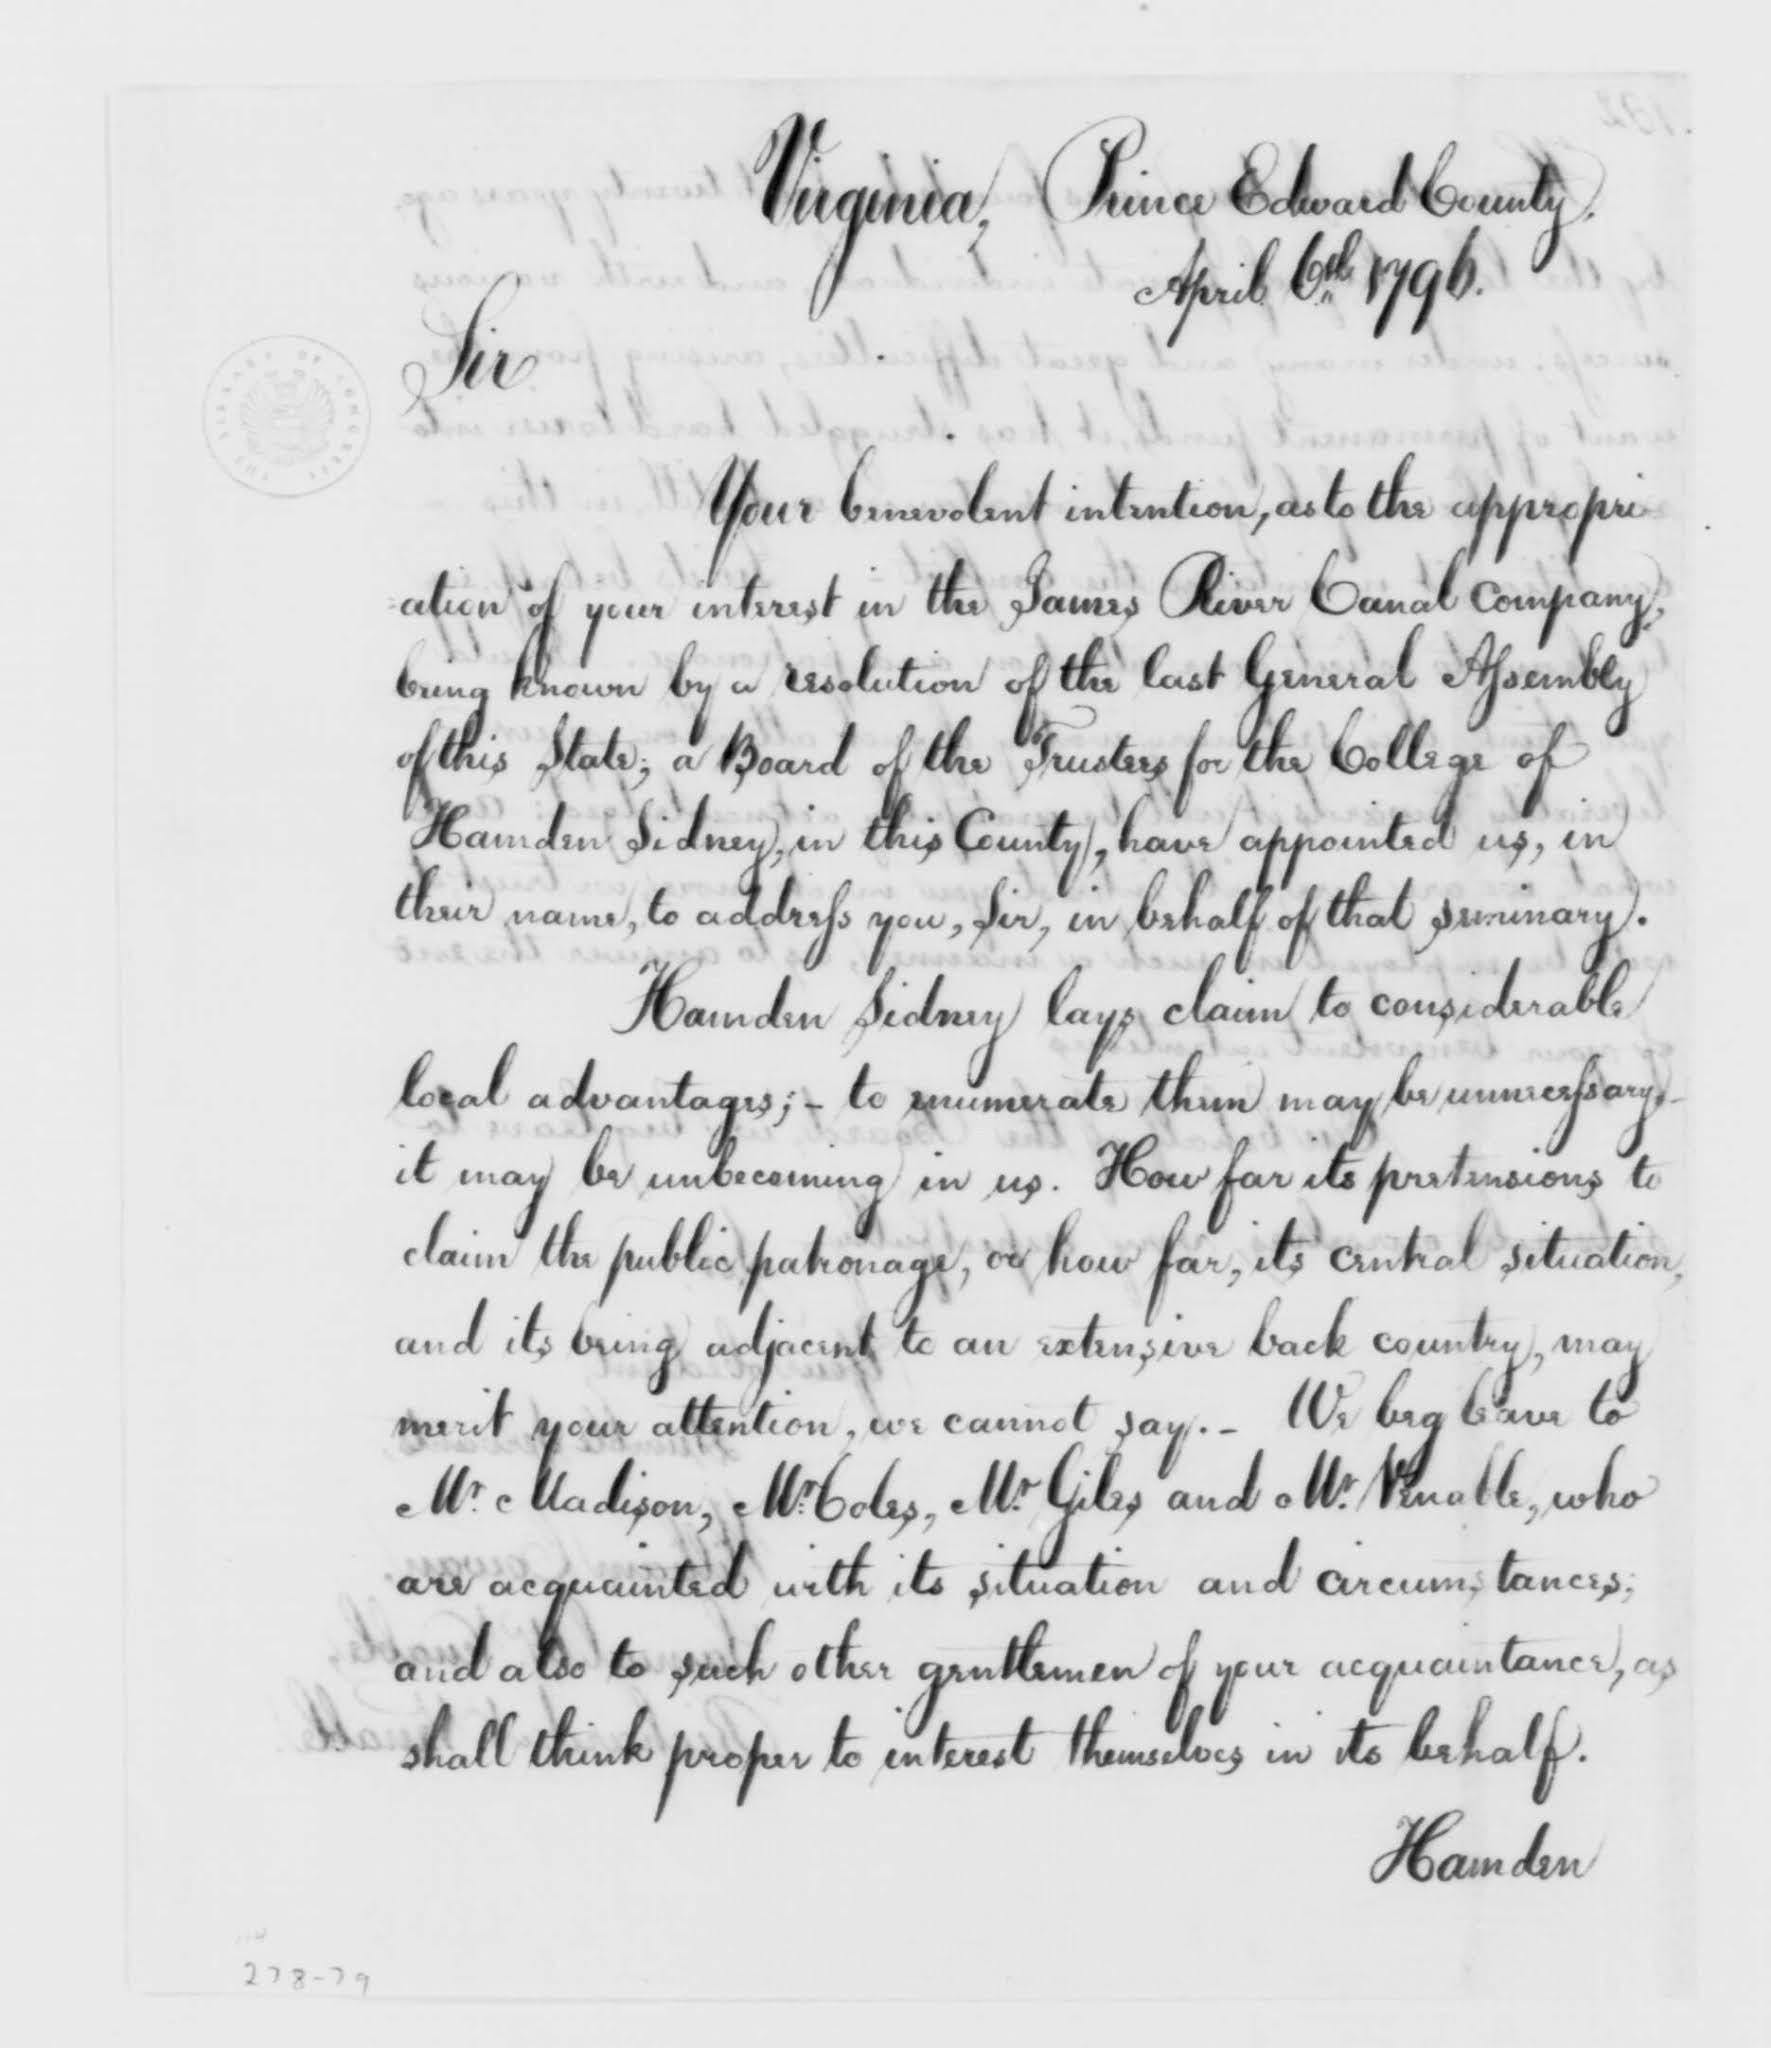 Virginia, Prince Edward County.
April 6th 1796.
Sir
Your benevolent intention, as to the appropri
=ation of your interest in the James River Canal Company,
being known by a resolution of the last General Assembly
of this State; a Board of the Trustees for the College of
Hamden Sidney, in this County, have appointed us, in
their name, to address you, Sir, in behalf of that seminary.
Hamden Sidney lays claim to considerable
local advantages; - to enumerate them may be unnecessary, -
it may be unbecoming in us. How far its pretensions to
claim the public patronage, or how far, its central situation,
and its being adjacent to an extensive back country, may
merit your attention, we cannot say. - We beg leave to
Mr. Madison, Mr. Coles, Mr. Giles and Mr. Venable, who
are acquainted with its situation and circumstances;
and also to such other gentlemen of your acquaintance, as
shall think proper to interest themselves in its behalf.
Hamden
278-79
THE LIBRARY OF CONGRESS